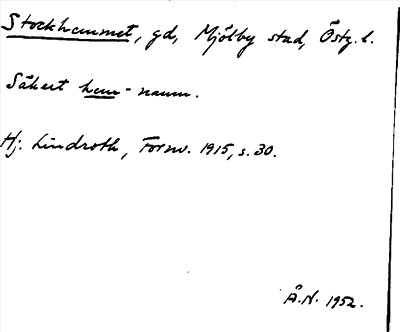 Stockhemmet, gd, Mjölby stad, Östg. l.
Säkert hem-namn.
Hj. Lindroth, Fornv. 1915, s. 30.
Å.N. 1952.